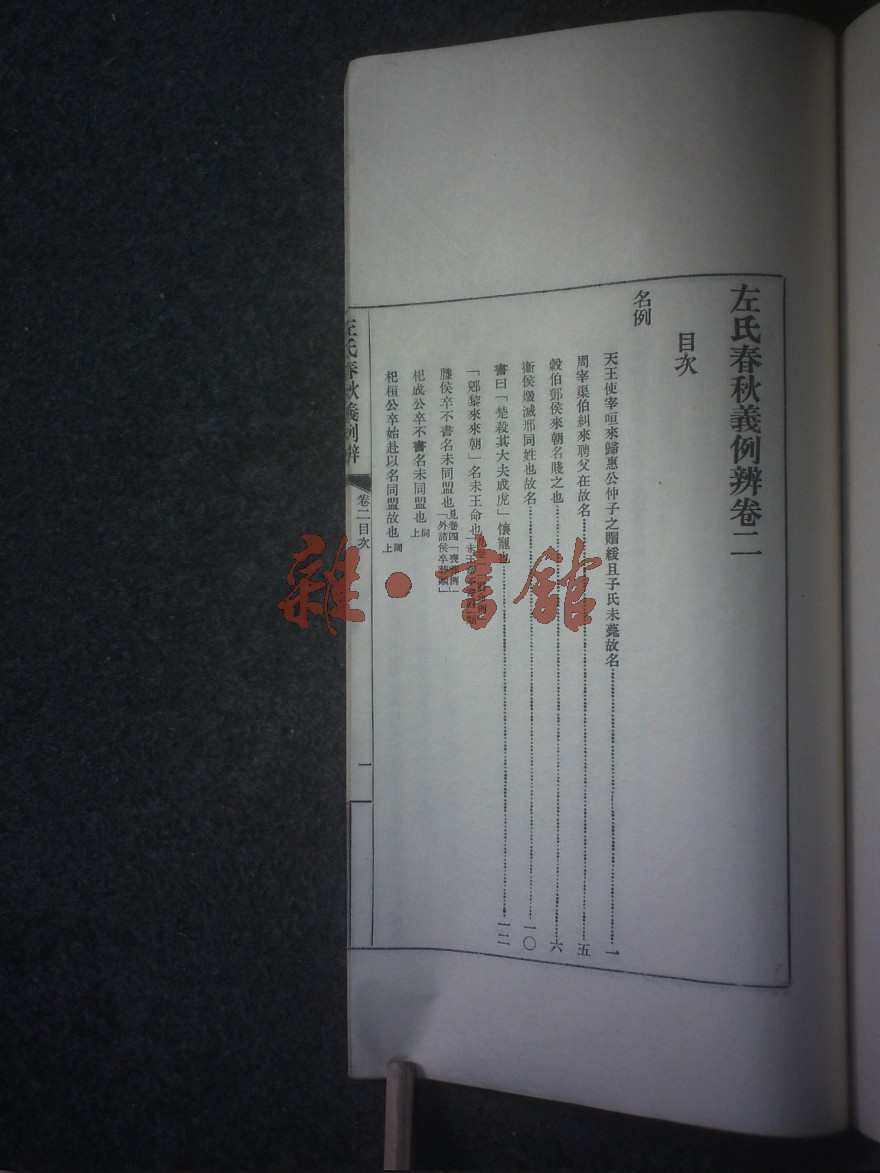 左氏春秋義例辨卷二
目次
名例
天王使宰咺來歸惠公仲子之賵緩且子氏未薨故名……一
周宰渠伯糾來聘父在故名……五
穀伯鄧侯來朝名賤之也……六
衛侯燬滅邢同姓也故名……一〇
書曰「楚殺其大夫成虎」懷寵也……一二
「郳黎來來朝」名未王命也
滕侯卒不書名未同盟也 見卷四「喪葬例」「外諸侯卒葬類」
杞成公卒不書名未同盟也 同上
杞桓公卒始赴以名同盟故也 同上
左氏春秋義例辨
卷二目次
一
雜·書館